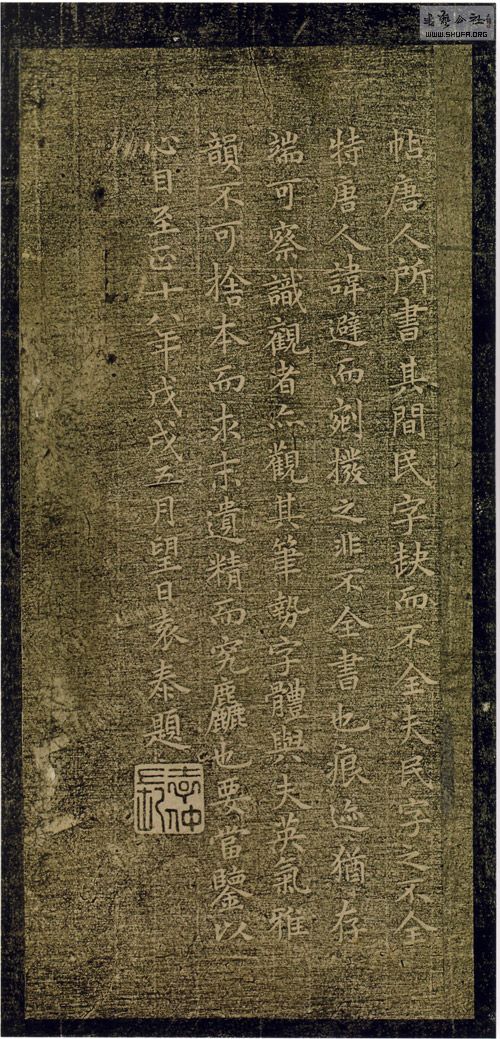 帖唐人所書其間民字缺而不全夫民字之不全
特唐人諱避而剜撥之非不全書也痕迹猶存
端可察識觀者亦觀其筆勢字體與夫英氣雅
韻不可捨本而求末遺精而究麤也要當鑒以
心目至正十八年戊戌五月望日袁泰題
WWW.SHUFA.ORG